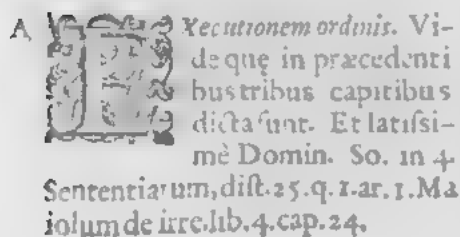 A EXecutionem ordinis. Vi-
de quę in præcedenti
bus tribus capitibus
dicta sunt. Et latissi-
mè Domin. So. in 4.
Sententiarum, dist. 25. q. 1. ar. 1. Ma
iolum de irre. lib. 4. cap. 24.